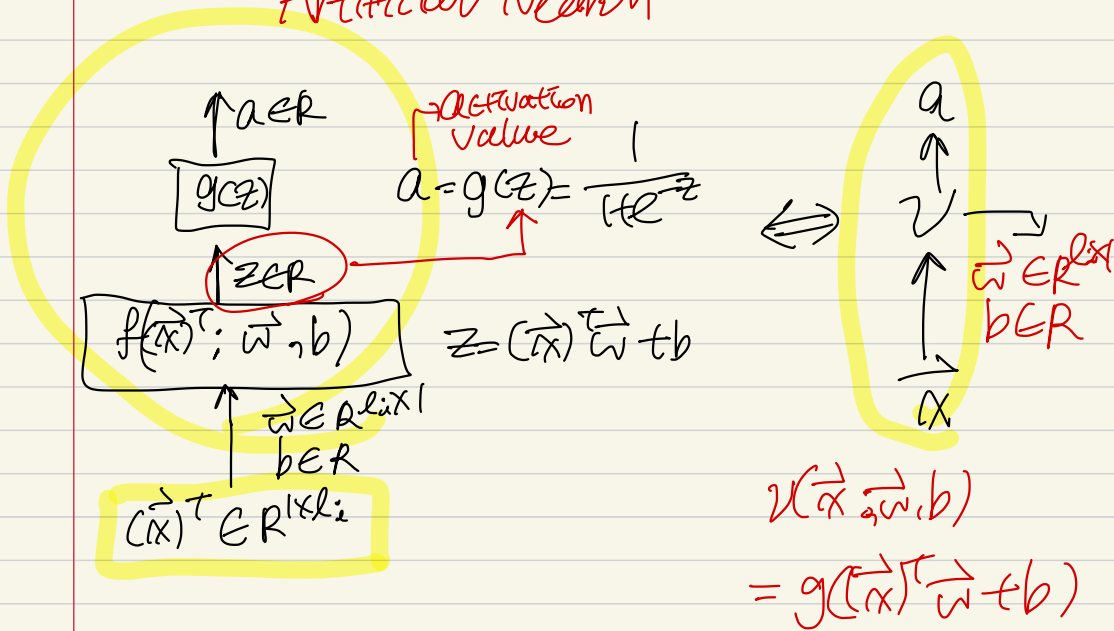 Artificial Neuron
a∈R
activation
value
g(z)
a = g(z) = 1/(1+e^-z)
z∈R
f((x⃗)^T; w⃗, b)
z = (x⃗)^T w⃗ + b
w⃗ ∈ R^{l_i×1}
b∈R
(x⃗)^T ∈ R^{1×l_i}
a
ν
w⃗ ∈ R^{l_i×1}
b∈R
x⃗
ν(x⃗; w⃗, b)
= g((x⃗)^T w⃗ + b)